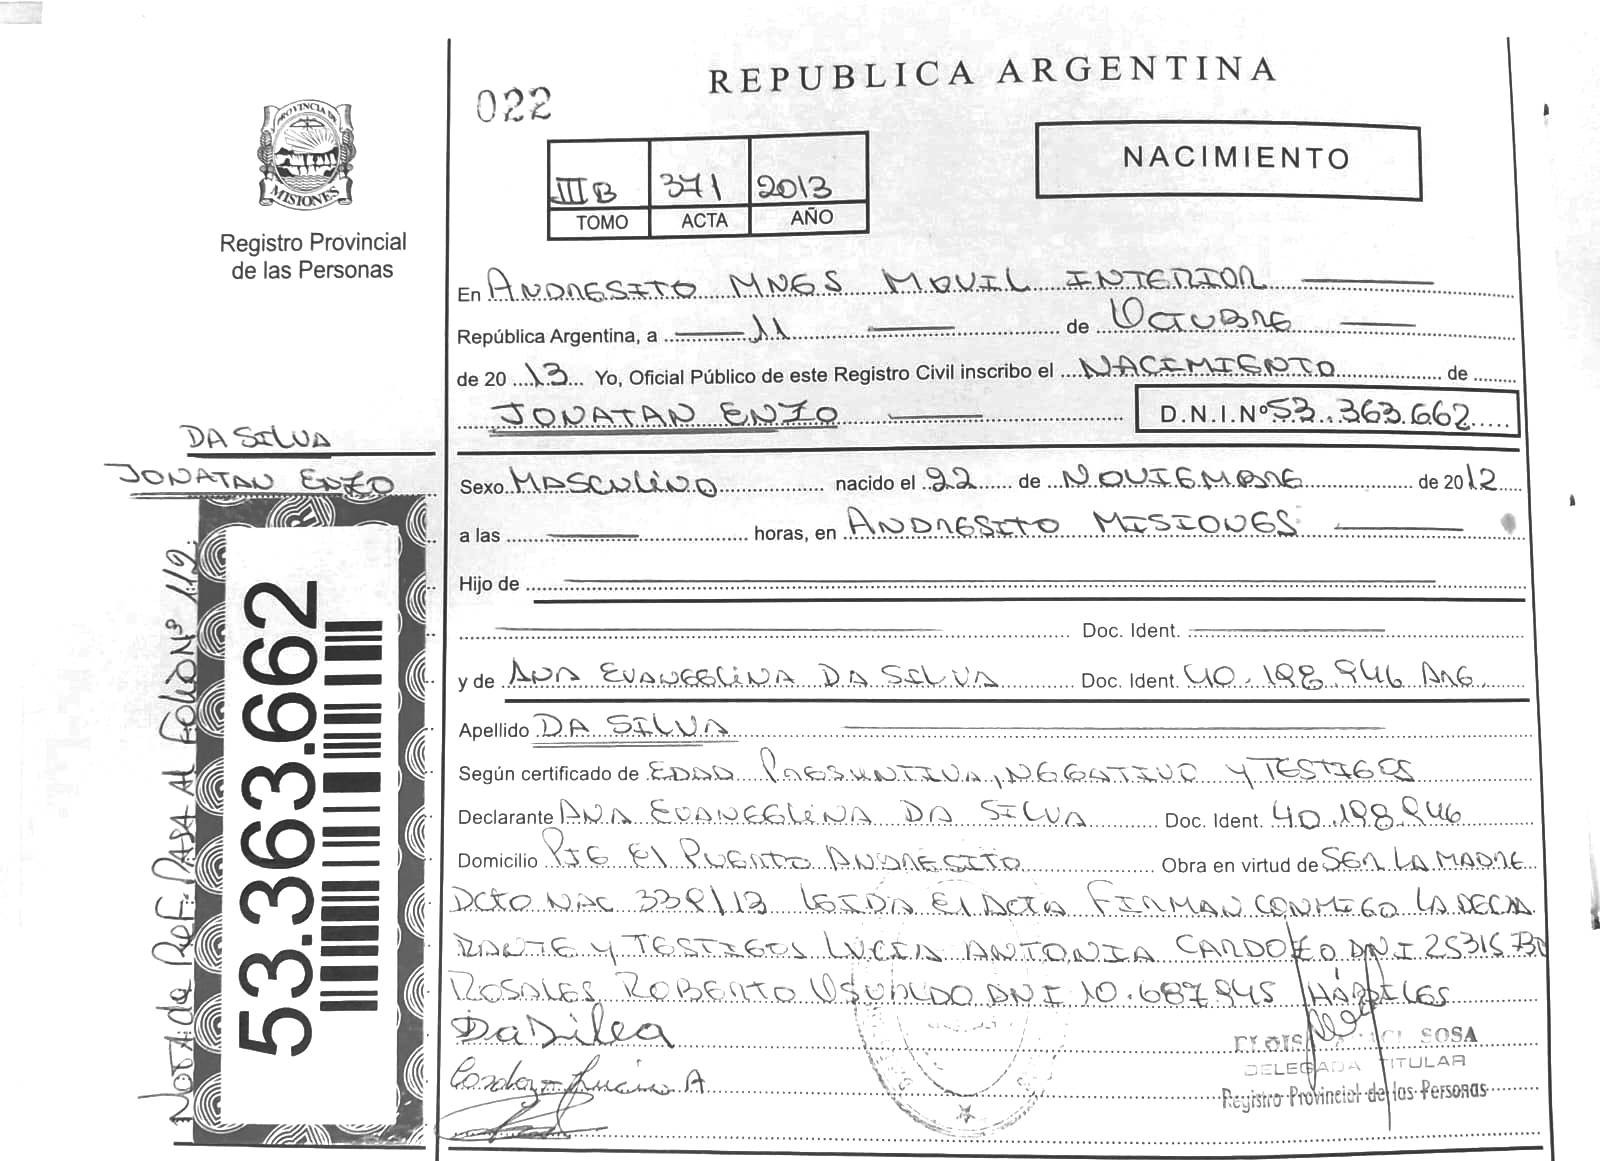 REPUBLICA ARGENTINA
022
NACIMIENTO
III B 371 2013
TOMO ACTA AÑO
PROVINCIA DE
MISIONES
Registro Provincial
de las Personas
En ANDRESITO MNES MOVIL INTERIOR
República Argentina, a 11 de OCTUBRE
de 2013 Yo, Oficial Público de este Registro Civil inscribo el NACIMIENTO de
JONATAN ENZO D.N.I.Nº 53.363.662
DA SILVA
JONATAN ENZO
Sexo MASCULINO nacido el 22 de NOVIEMBRE de 2012
a las horas, en ANDRESITO MISIONES
Hijo de
Doc. Ident.
y de ANA EVANGELINA DA SILVA Doc. Ident. 40.198.946 ARG.
Apellido DA SILVA
Según certificado de EDAD PRESUNTIVA, NEGATIVO Y TESTIGOS
Declarante ANA EVANGELINA DA SILVA Doc. Ident. 40.198.946
Domicilio PJE El PUERTO ANDRESITO Obra en virtud de SER LA MADRE
DCTO NAC 339/13 LEIDA El ACTA FIRMAN CONMIGO LA DECLA
RANTE Y TESTIGOS LUCIA ANTONIA CARDOZO DNI
ROSALES ROBERTO OSVALDO DNI 10.687.945 HÁBILES
Da Silva
Cardozo Lucia A
SOSA
DELEGADA TITULAR
Registro Provincial de las Personas
53.363.662
Nota de Ref. PASA Al Folio Nº 112